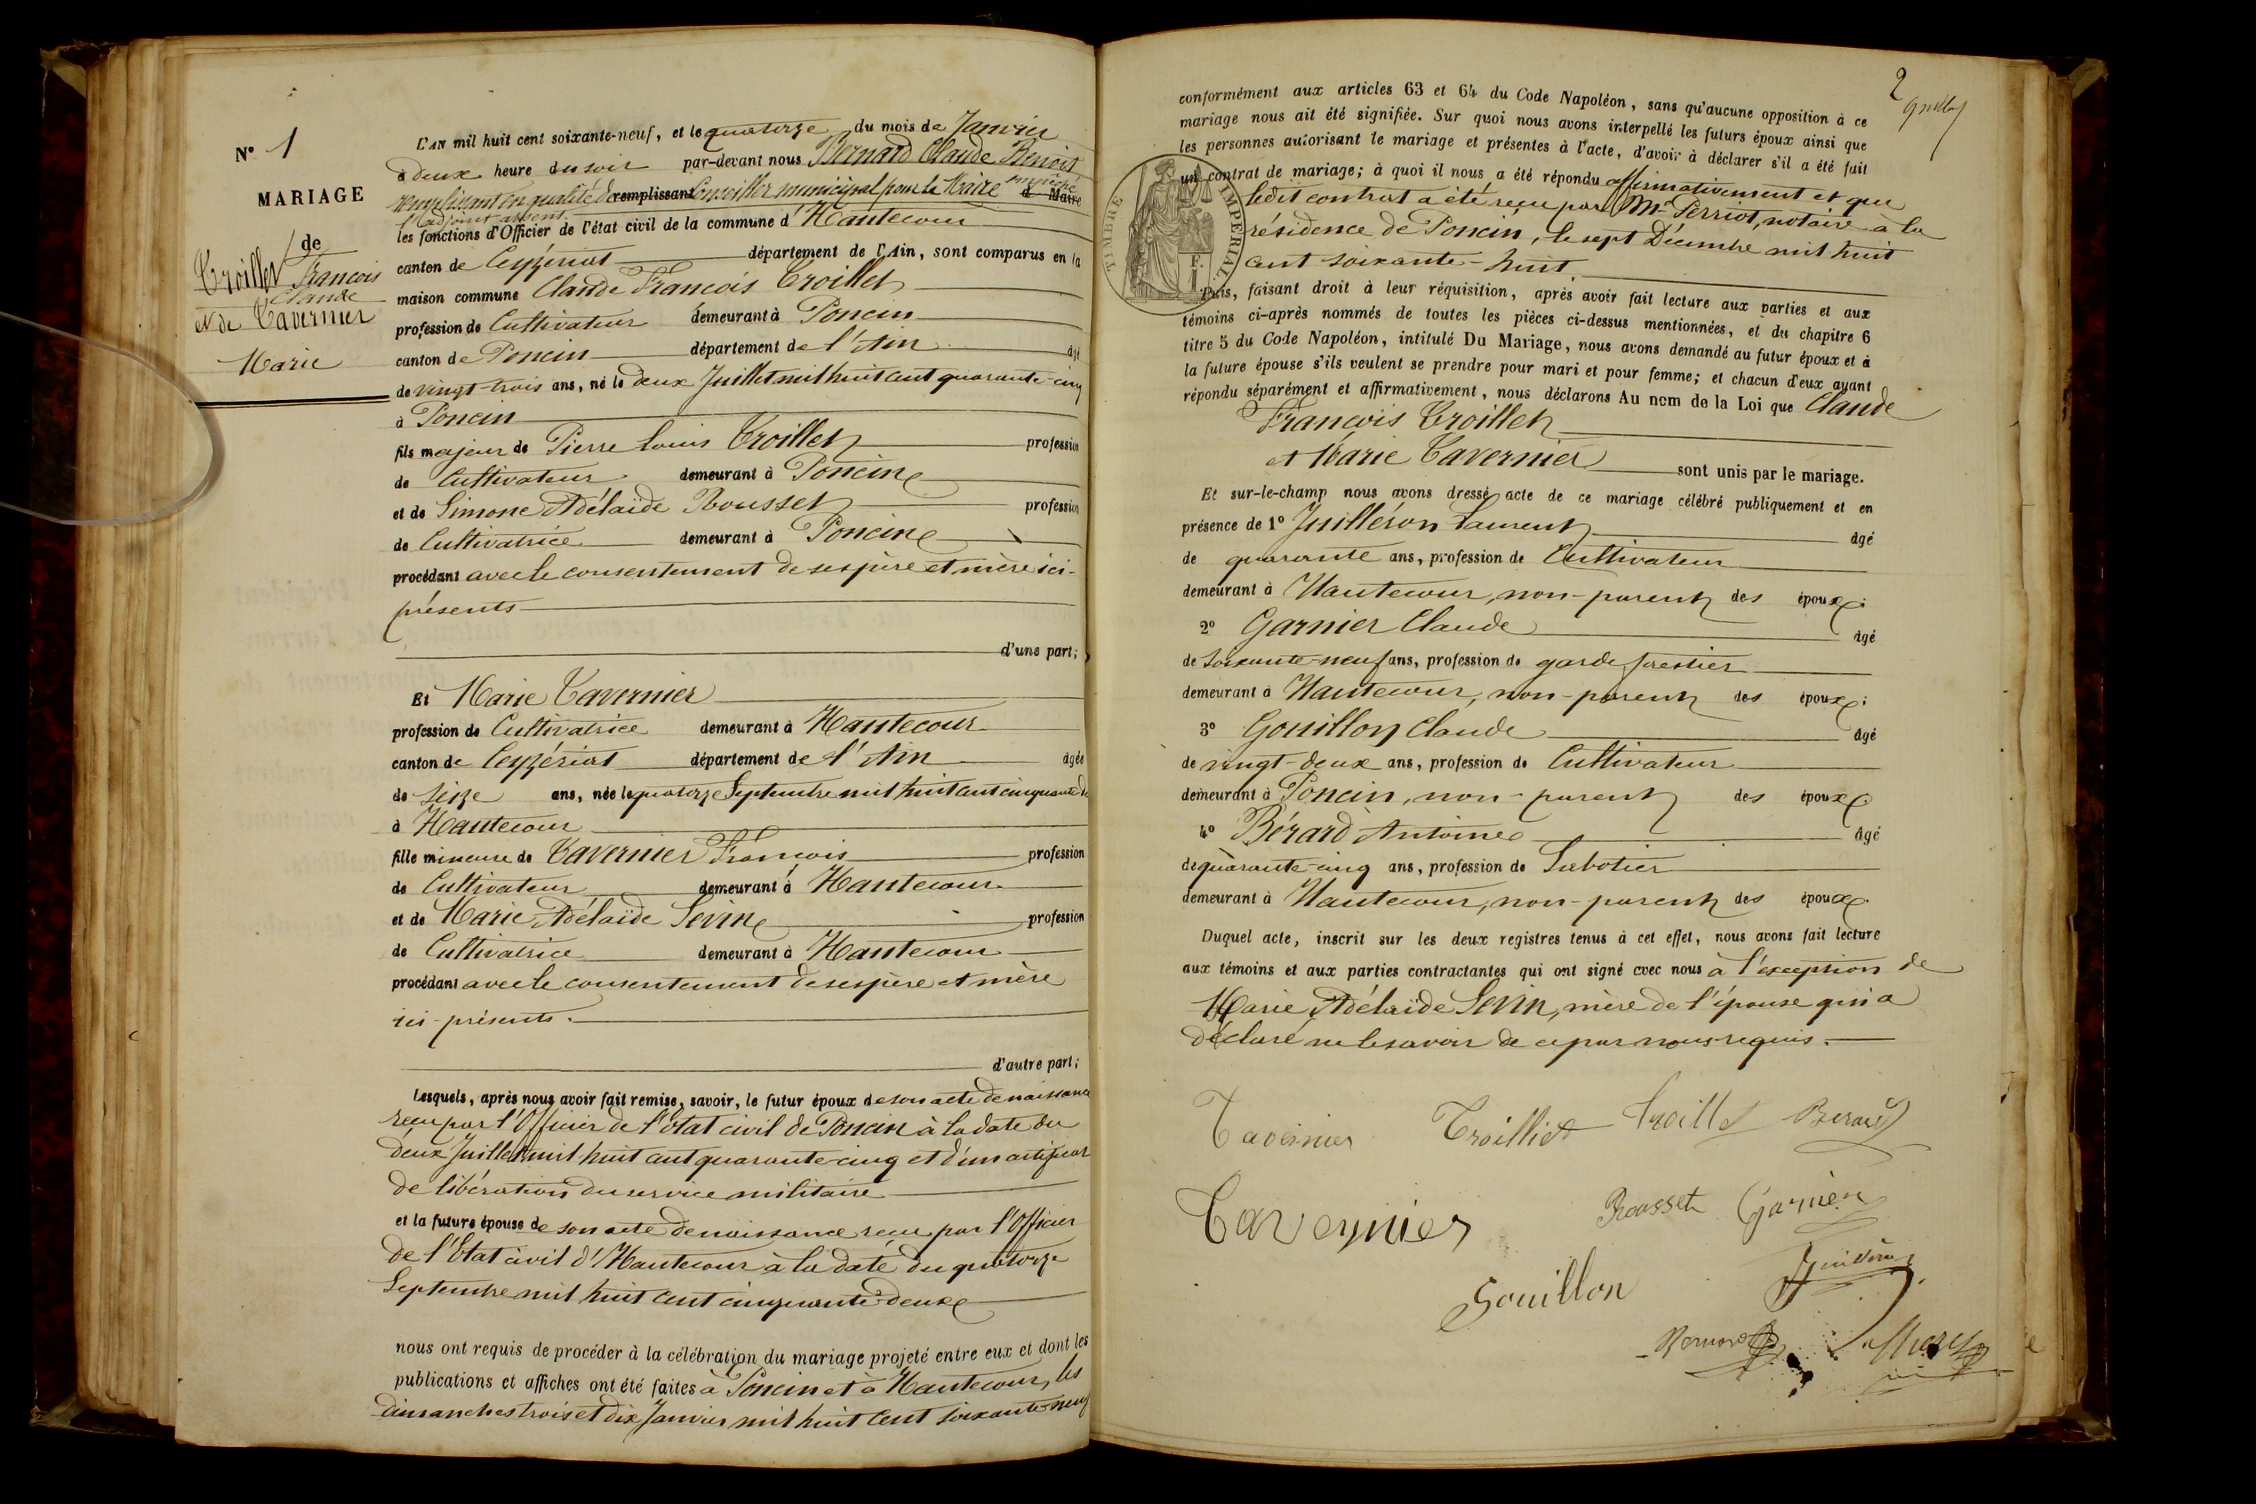 N° 1
MARIAGE
de
Troillet François
Claude
et de Tavernier
Marie
L'AN mil huit cent soixante-neuf, et le quatorze du mois de Janvier
à deux heure du soir par-devant nous Bernard Claude Benoit
remplissant en qualité de remplissant Conseiller municipal pour le Maire empêché d Maire
l'adjoint absent
les fonctions d'Officier de l'état civil de la commune d'Hautecour
canton de Ceyzériat département de l'Ain, sont comparus en la
maison commune Claude François Troillet
profession de Cultivateur demeurant à Poncin
canton de Poncin département de l'Ain âgé
de vingt-trois ans, né le deux Juillet mil huit cent quarante-cinq
à Poncin
fils majeur de Pierre Louis Troillet profession
de Cultivateur demeurant à Poncin
et de Simone Adélaïde Rousset profession
de Cultivatrice demeurant à Poncin
procédant avec le consentement de ses père et mère ici-
présents
d'une part;
Et Marie Tavernier
profession de Cultivatrice demeurant à Hautecour
canton de Ceyzériat département de l'Ain âgée
de seize ans, née le quatorze Septembre mil huit cent cinquante
à Hautecour
fille mineure de Tavernier François profession
de Cultivateur demeurant à Hautecour
et de Marie Adélaïde Sevin profession
de Cultivatrice demeurant à Hautecour
procédant avec le consentement de ses père et mère
ici-présents.
d'autre part;
Lesquels, après nous avoir fait remise, savoir, le futur époux de son acte de naissance
reçu par l'Officier de l'Etat civil de Poncin à la date du
deux Juillet mil huit cent quarante-cinq et d'un certificat
de libération du service militaire
et la future épouse de son acte de naissance reçu par l'Officier
de l'Etat civil d'Hautecour à la date du quatorze
Septembre mil huit cent cinquante-deux
nous ont requis de procéder à la célébration du mariage projeté entre eux et dont les
publications et affiches ont été faites à Poncin et à Hautecour, les
dimanches trois et dix Janvier mil huit cent soixante-neuf
2
conformément aux articles 63 et 64 du Code Napoléon, sans qu'aucune opposition à ce
mariage nous ait été signifiée. Sur quoi nous avons interpellé les futurs époux ainsi que
les personnes autorisant le mariage et présentes à l'acte, d'avoir à déclarer s'il a été fait
un contrat de mariage; à quoi il nous a été répondu affirmativement et que
ledit contrat a été reçu par Me Perriot, notaire à la
résidence de Poncin, le sept Décembre mil huit
cent soixante-huit.
TIMBRE IMPÉRIAL
Puis, faisant droit à leur réquisition, après avoir fait lecture aux parties et aux
témoins ci-après nommés de toutes les pièces ci-dessus mentionnées, et du chapitre 6
titre 5 du Code Napoléon, intitulé Du Mariage, nous avons demandé au futur époux et à
la future épouse s'ils veulent se prendre pour mari et pour femme; et chacun d'eux ayant
répondu séparément et affirmativement, nous déclarons Au nom de la Loi que Claude
François Troillet
et Marie Tavernier sont unis par le mariage.
Et sur-le-champ nous avons dressé acte de ce mariage célébré publiquement et en
présence de 1° Juilléron Laurent âgé
de quarante ans, profession de Cultivateur
demeurant à Hautecour, non-parent des époux;
2° Garnier Claude âgé
de soixante-neuf ans, profession de garde forestier
demeurant à Hautecour, non-parent des époux;
3° Gouillon Claude âgé
de vingt-deux ans, profession de Cultivateur
demeurant à Poncin, non-parent des époux
4° Bérard Antoine âgé
de quarante-cinq ans, profession de Sabotier
demeurant à Hautecour, non-parent des époux.
Duquel acte, inscrit sur les deux registres tenus à cet effet, nous avons fait lecture
aux témoins et aux parties contractantes qui ont signé avec nous à l'exception de
Marie Adélaïde Sevin, mère de l'épouse qui a
déclaré ne le savoir de ce par nous requis.
Tavernier Troilliet Troillet Berard
Tavernier Rousset Garnier
Gouillon Juilléron
Bernard